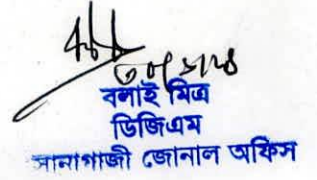 বলাই মিত্র
ডিজিএম
সোনাগাজী জোনাল অফিস